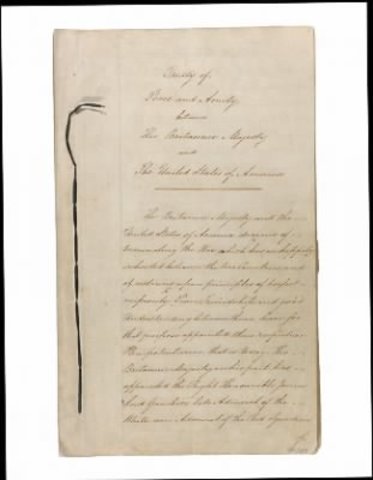 Treaty of
Peace and Amity
between
His Britannic Majesty
and
The United States of America
His Britannic Majesty and the
United States of America desirous of
terminating the War which has unhappily
subsisted between the two Countries and
of restoring upon principles of perfect
reciprocity Peace, Friendship and good
Understanding between them, have for
that purpose appointed their respective
Plenipotentiaries that is to say, His
Britannic Majesty on his part has
appointed the Right Honourable James
Lord Gambier, late Admiral of the
White now Admiral of the Red Squadron